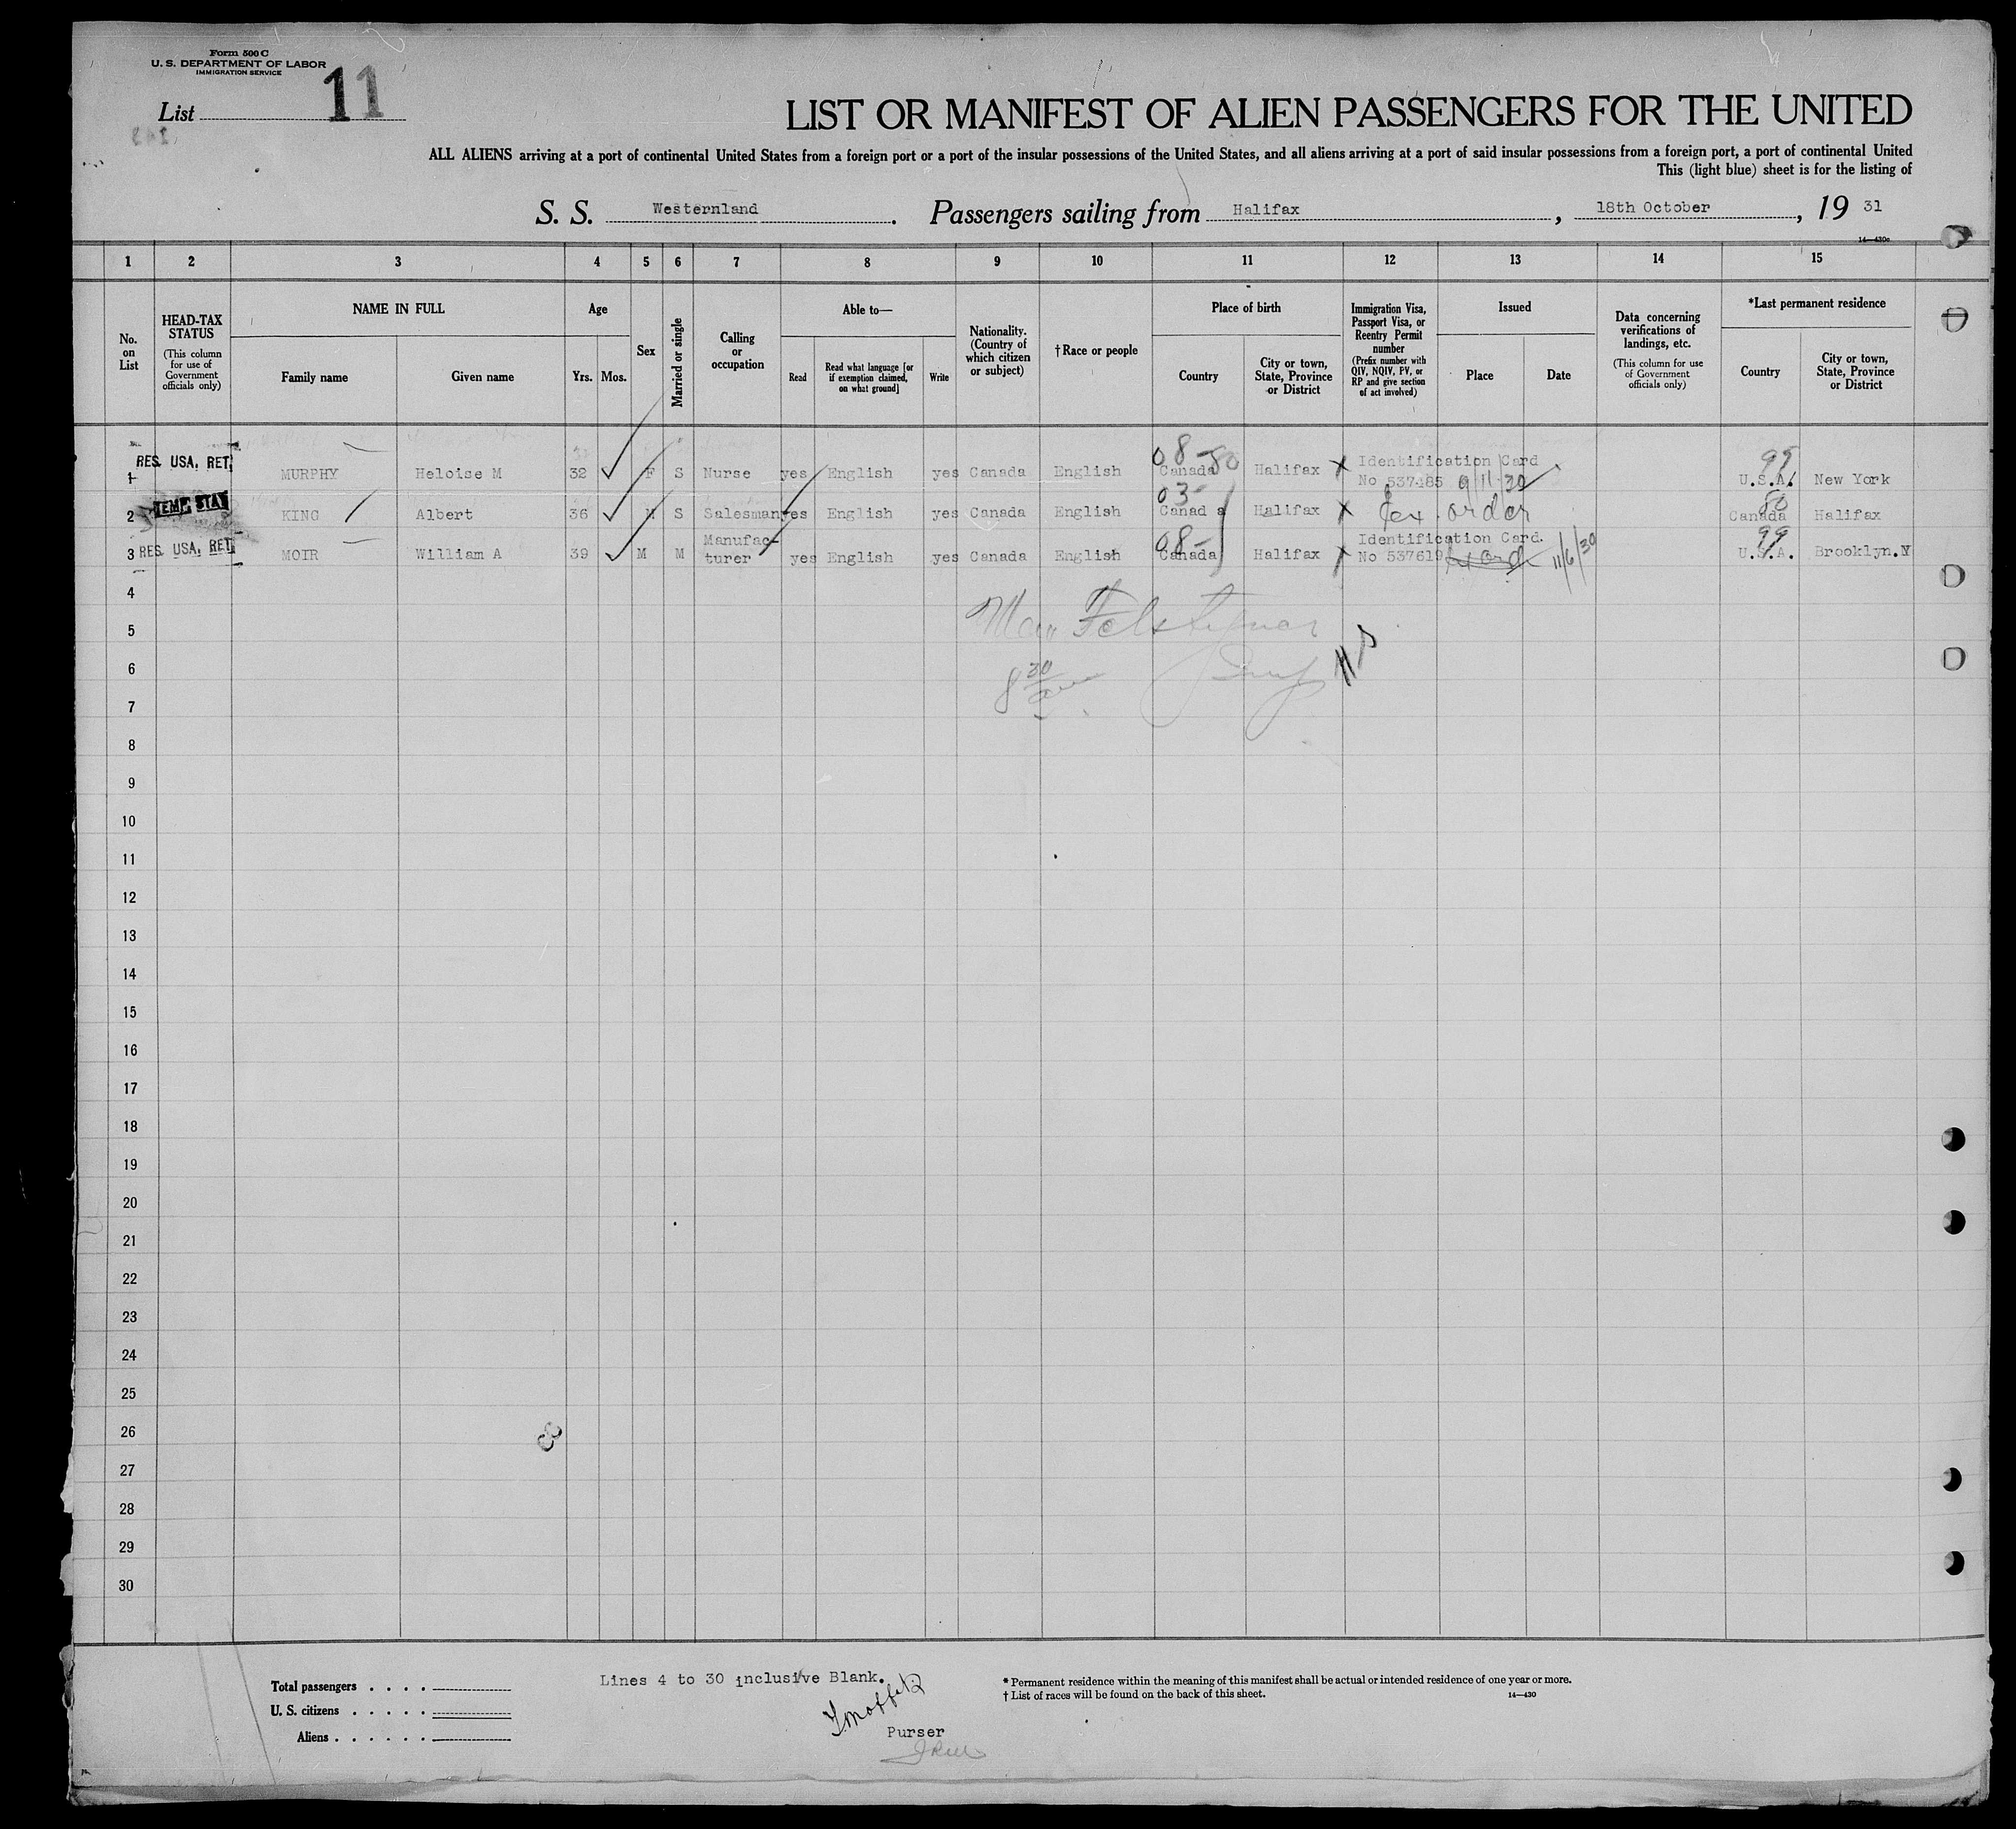 Form 500 C
U. S. DEPARTMENT OF LABOR
IMMIGRATION SERVICE
List 11
LIST OR MANIFEST OF ALIEN PASSENGERS FOR THE UNITED
ALL ALIENS arriving at a port of continental United States from a foreign port or a port of the insular possessions of the United States, and all aliens arriving at a port of said insular possessions from a foreign port, a port of continental United
This (light blue) sheet is for the listing of
S. S. Westernland. Passengers sailing from Halifax, 18th October, 19 31
14—430c
1 2 3 4 5 6 7 8 9 10 11 12 13 14 15
No. on List
HEAD-TAX STATUS (This column for use of Government officials only)
NAME IN FULL
Family name
Given name
Age
Yrs.
Mos.
Sex
Married or single
Calling or occupation
Able to—
Read
Read what language [or if exemption claimed, on what ground]
Write
Nationality. (Country of which citizen or subject)
†Race or people
Place of birth
Country
City or town, State, Province or District
Immigration Visa, Passport Visa, or Reentry Permit number (Prefix number with QIV, NQIV, PV, or RP and give section of act involved)
Issued
Place
Date
Data concerning verifications of landings, etc. (This column for use of Government officials only)
*Last permanent residence
Country
City or town, State, Province or District
1 RES. USA. RET. MURPHY Heloise M 32 F S Nurse yes English yes Canada English 08-50 Canada Halifax Identification Card No 537485 9/11/30 99 U.S.A. New York
2 TEMP STAY KING Albert 36 M S Salesman yes English yes Canada English 03- Canad a Halifax Ex. order 50 Canada Halifax
3 RES. USA. RET. MOIR William A 39 M M Manufac-turer yes English yes Canada English 08- Canada Halifax Identification Card. No 537619 11/6/30 99 U.S.A. Brooklyn.N
4
5
6
8 30
7
8
9
10
11
12
13
14
15
16
17
18
19
20
21
22
23
24
25
26
27
28
29
30
Total passengers . . . .
U. S. citizens . . . . .
Aliens . . . . . .
Lines 4 to 30 inclusive Blank.
Purser
* Permanent residence within the meaning of this manifest shall be actual or intended residence of one year or more.
† List of races will be found on the back of this sheet.
14—430